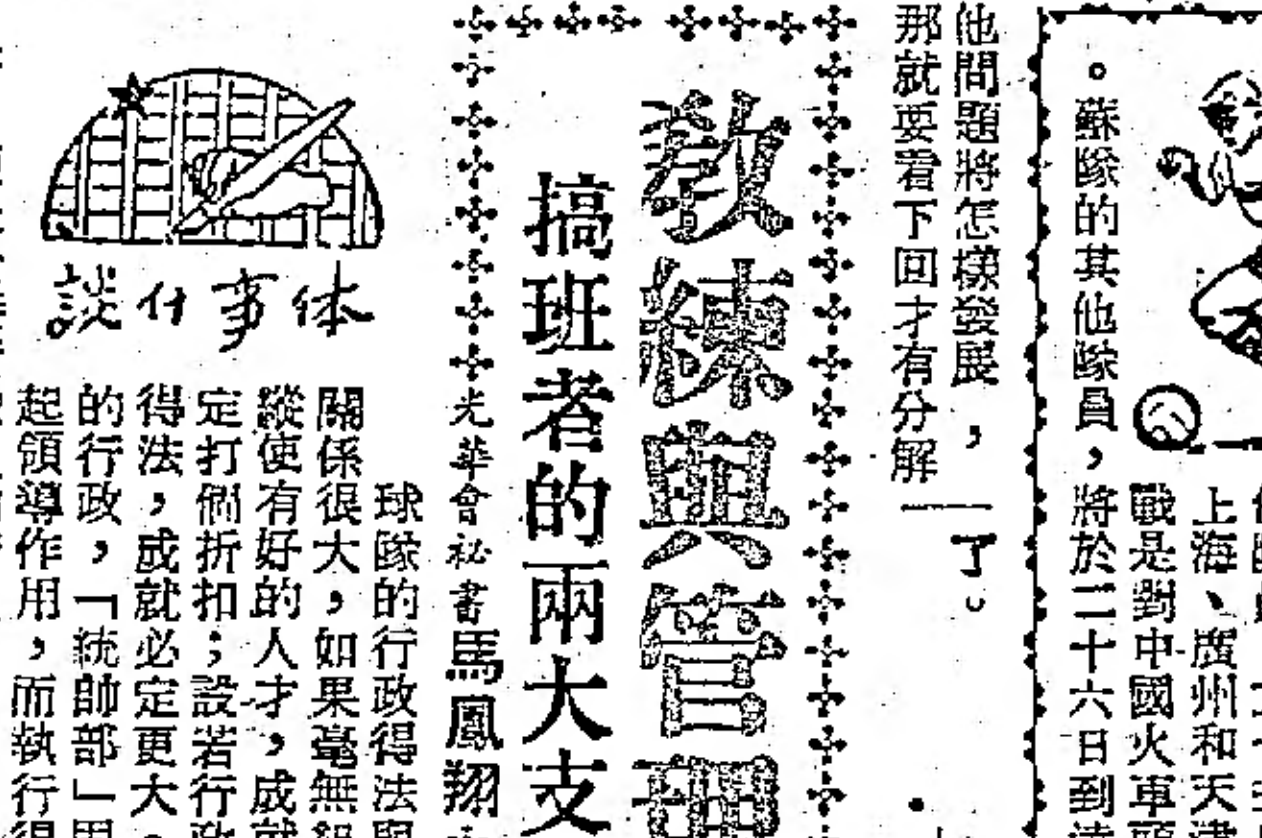 。蘇隊的其他隊員，將於二十六日到達
上海、廣州和天津
戰是對中國火車頭
他問題將怎樣發展，
那就要看下回才有分解
了。
教練與管理
搞班者的兩大支
光華會祕書馬鳳翔
談什事体
球隊的行政得法與
關係很大，如果毫無組
縱使有好的人才，成就
定打個折扣；設若行政
得法，成就必定更大。
的行政，「統帥部」
起領導作用，而執行得